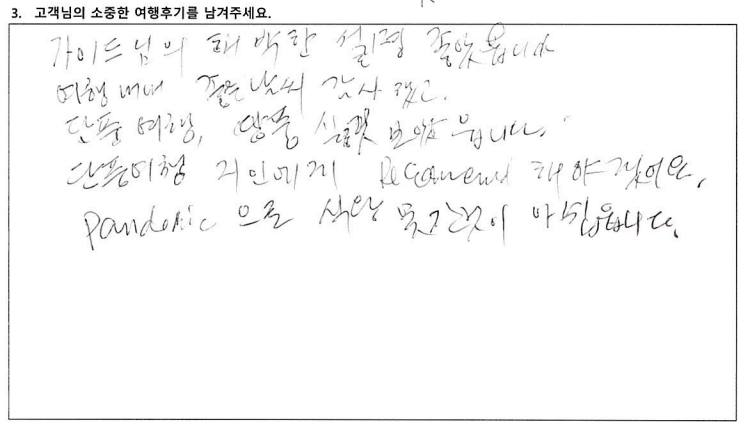 3. 고객님의 소중한 여행후기를 남겨주세요.
가이드님의 해박한 설명 좋았읍니다
여행 내내 좋은 날씨 감사했고.
단풍 여행, 실컷 보았읍니다.
단풍여행 지인에게 Recomend 해야겠어요.
pandemic 으로 못간것이 아쉽읍니다.